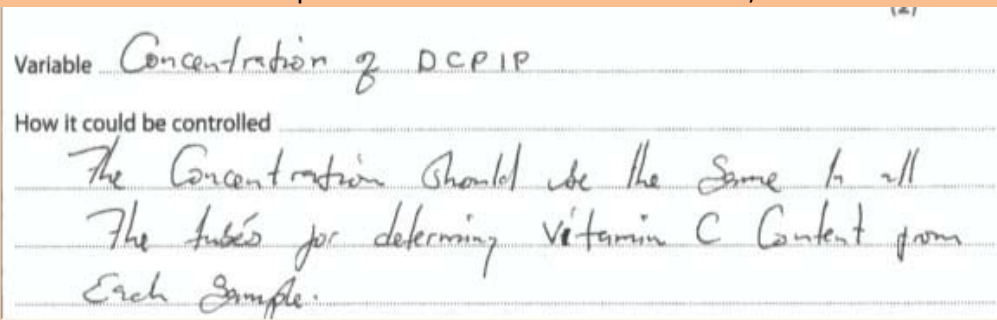 (2)
Variable Concentration of DCPIP
How it could be controlled
The Concentration Should be the Same in all
The tubes for determing Vitamin C Content from
Each Sample.